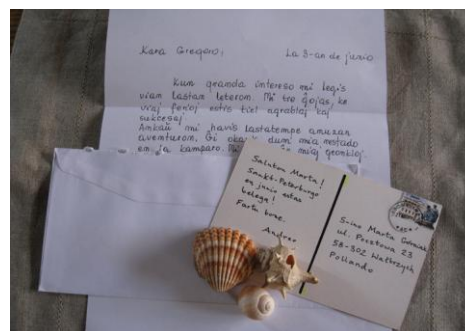 Kara Gregoro!
La 3-an de junio
Kun granda intereso mi legis
vian lastan leteron. Mi tre ĝojas, ke
viaj ferioj estis tiel agrablaj kaj
sukcesaj.
Ankaŭ mi havis lastatempe amuzan
aventuron. Ĝi okazis dum mia restado
en la kamparo. miaj geonkloj.
Saluton Marta!
Sankt-Peterburgo
en junio estas
belega!
Fartu bone.
Andreo
S-ino Marta
ul. Pocztowa 23
58-302 Wałbrzych
Pollando